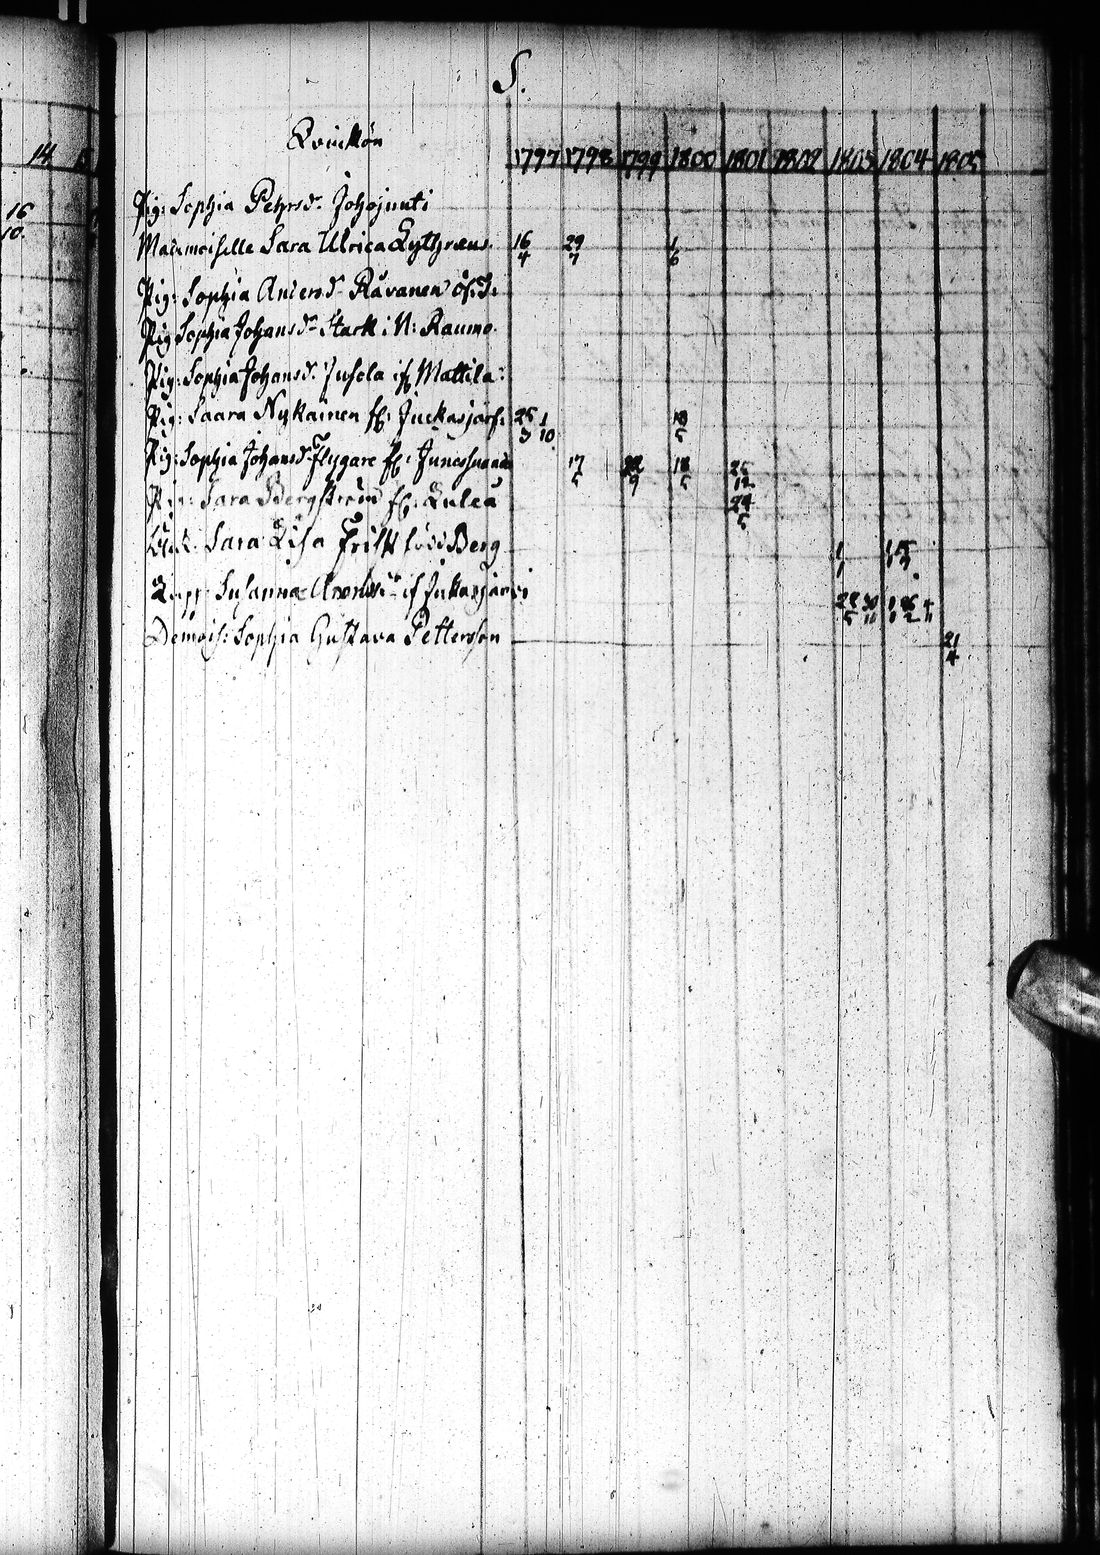 S.
Qvinkön
1797 1798 1799 1800 1801 1802 1803 1804 1805
14
16
10.
Pig: Sophia Pehrsd:
Mademoiselle Sara Ulrica Lythræus. 16/4 29/7 1/6
Pig: Sophia Andersd: Råvanen
Pig Sophia Johansd: Stark i N: Raumo.
Pig: Sophia Johansd: Jusola if Mattila
Pig: Saara Nykäinen fr: Juckasjärf: 25/3 1/10 18/5
Pig: Sophia Johansd Flygare fr: 17/5 22/9 18/5 25/12
Pig: Sara Bergström fr: Luleå 24/5
Sara Lisa Frisk född Berg 1/1
Lapp: Susanna if Jukasjärvi
Demois: Sophia Gustava Petterson 21/4